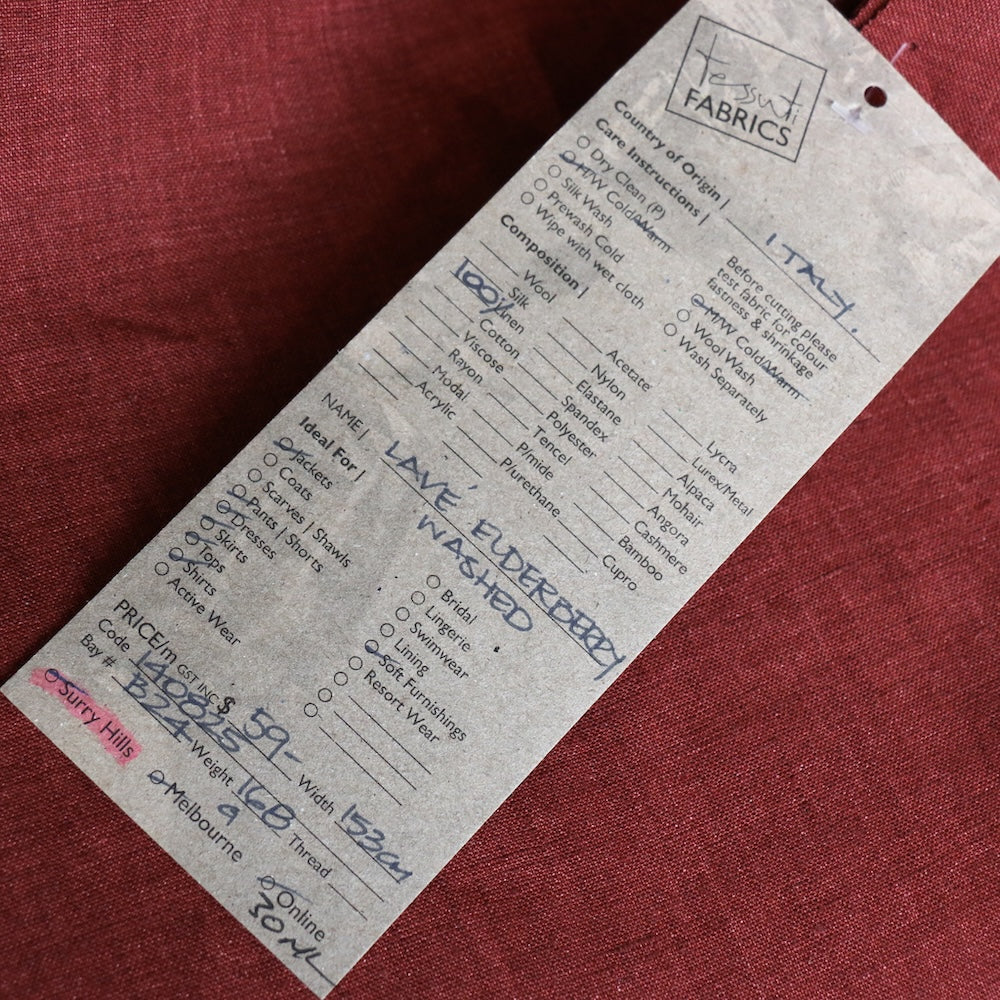 Tessuti
FABRICS
Country of Origin | ITALY.
Care Instructions |
Dry Clean (P)
H/W Cold/Warm
Silk Wash
Prewash Cold
Wipe with wet cloth
Before cutting please
test fabric for colour
fastness & shrinkage
M/W Cold/Warm
Wool Wash
Wash Separately
Composition |
Wool
Silk
100% Linen
Cotton
Viscose
Rayon
Modal
Acrylic
Acetate
Nylon
Elastane
Spandex
Polyester
Tencel
P/mide
P/urethane
Lycra
Lurex/Metal
Alpaca
Mohair
Angora
Cashmere
Bamboo
Cupro
NAME | LAVÉ EUDERBERRY
WASHED
Ideal For |
Jackets
Coats
Scarves | Shawls
Pants | Shorts
Dresses
Skirts
Tops
Shirts
Active Wear
Bridal
Lingerie
Swimwear
Lining
Soft Furnishings
Resort Wear
PRICE/m GST INC $ 59- Width 153cm
Code 140825 Weight 168 Thread
Bay # B24
Surry Hills
Melbourne
9
Online
30